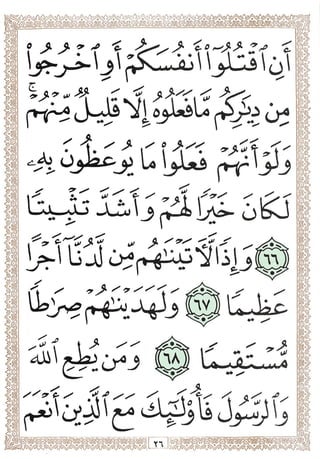 أَنِ ٱقْتُلُوٓا۟ أَنفُسَكُمْ أَوِ ٱخْرُجُوا۟
مِن دِيَٰرِكُم مَّا فَعَلُوهُ إِلَّا قَلِيلٌ مِّنْهُمْ ۖ
وَلَوْ أَنَّهُمْ فَعَلُوا۟ مَا يُوعَظُونَ بِهِۦ
لَكَانَ خَيْرًا لَّهُمْ وَأَشَدَّ تَثْبِيتًا
٦٦ وَإِذًا لَّءَاتَيْنَٰهُم مِّن لَّدُنَّآ أَجْرًا
عَظِيمًا ٦٧ وَلَهَدَيْنَٰهُمْ صِرَٰطًا
مُّسْتَقِيمًا ٦٨ وَمَن يُطِعِ ٱللَّهَ
وَٱلرَّسُولَ فَأُو۟لَٰٓئِكَ مَعَ ٱلَّذِينَ أَنْعَمَ
٢٦